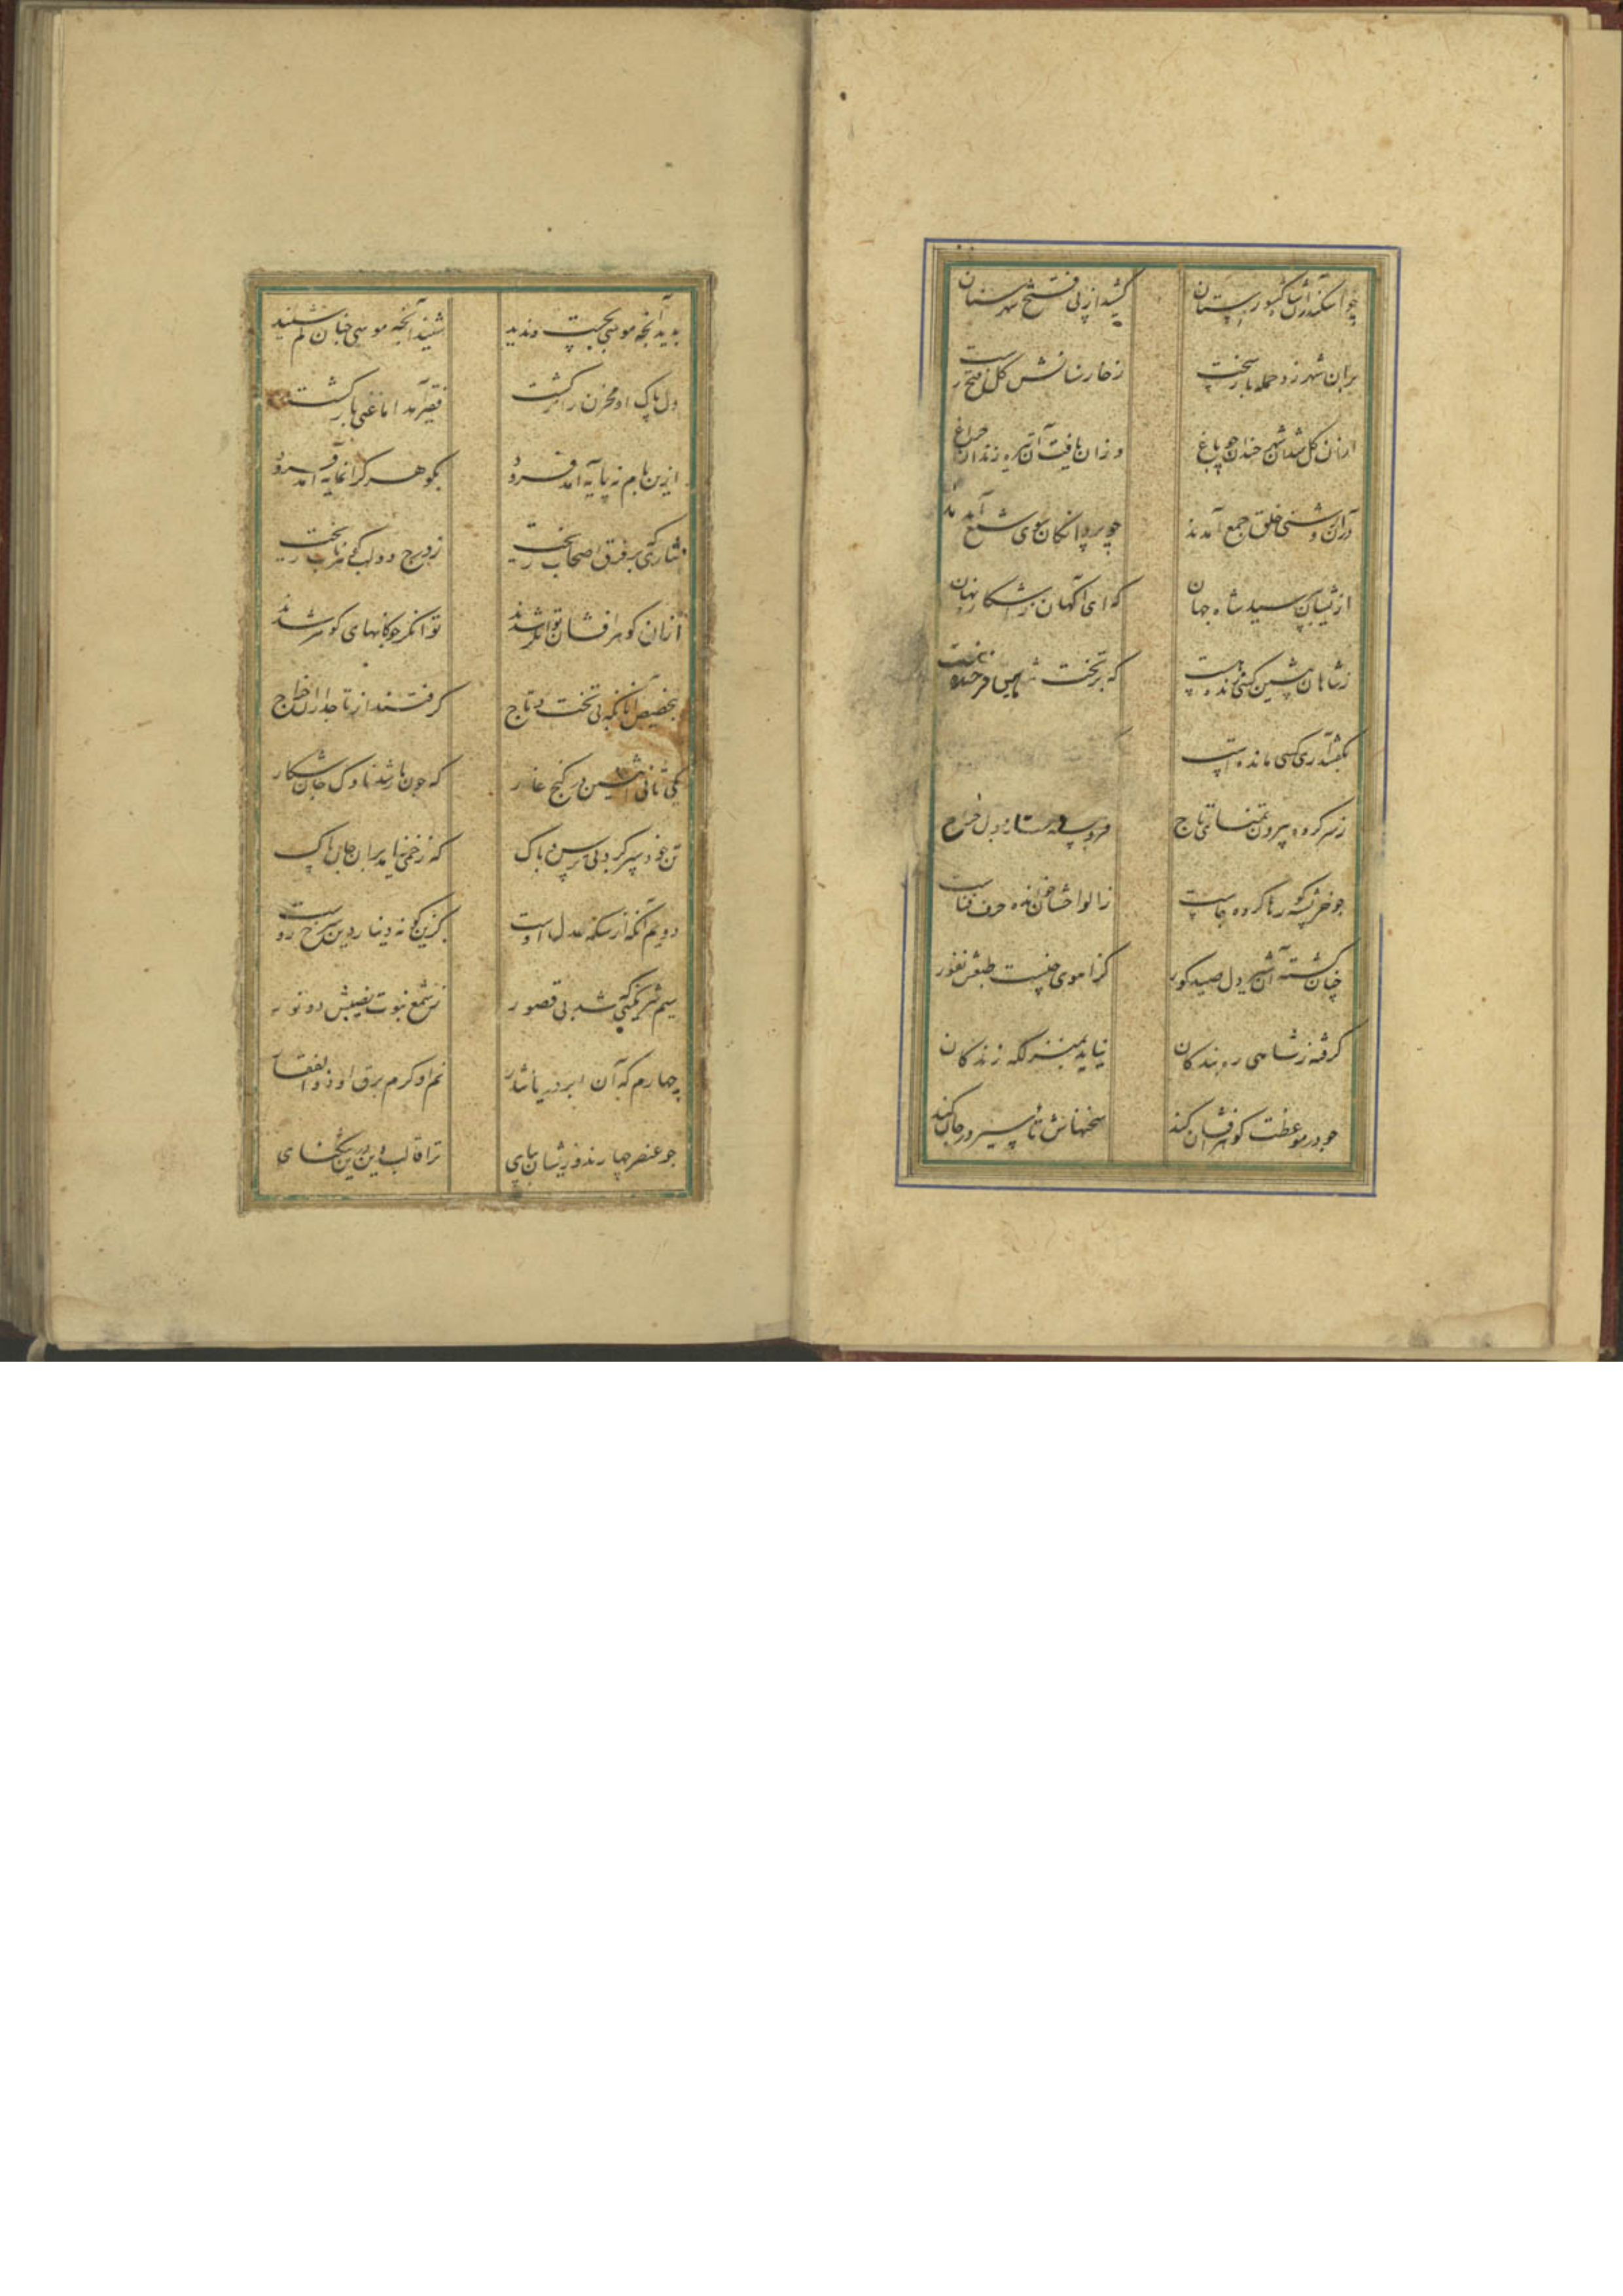 چو اسکندر آن شاه کشورستان کشید از پی فتح شهر ستان
بران شهر زد حمله سخت ز خار سنانش گل فتح رست
ازان گل شد آن شهر خندان چو باغ وزان یافت آن تیره زندان چراغ
دران روشنی خلق جمع آمدند چو پروانگان سوی شمع آمدند
ازیشان بپرسید شاه جهان که ای آگهان ز آشکار و نهان
ز شاهان پیشین کسی مانده است که بر تخت
بگفتند آری کسی مانده است
ز سر کرده بیرون تمنای تاج
چو خرپشته گور را کرده جاست ز الواحشان خوانده حرف فناست
چنان گشته آن شیر دل صید گور کز آهوی جنسیت طبعش نفور
گرفته ز شاهی ره بندگان نیاید بمنزلگه زندگان
چو در موعظت گوهر افشان کند سخنهاش تاثیر در جان کند
بدید آنچه موسی بجست و ندید شنید آنچه موسی چنان کم شنید
دل پاک او مخزن راز گشت فقیر آمد اما غنی باز گشت
ازین بام نه پایه آمد فرود بگوهر گرانمایه آمد فرود
نثاری که بر فرق اصحاب ریخت ز درج دو لب گوهر ناب ریخت
ازان گوهر افشان توانگر شدند توانگر چو کانهای گوهر شدند
بتخصیص آنانکه بی تخت و تاج گرفتند از تاجداران خراج
یکی ثانی اثنین در کنج غار که چون مار شد ناوک جان شکار
تن خود سپر کرد بی ترس و باک که زخمی نیاید بران جان پاک
دویم آنکه از سکه عدل اوست کزین گونه دینار دین سرخ روست
سیم شرمگینی شد بی قصور ز شمع نبوت نصیبش دو نور
چهارم که آن ابر دریا نثار نم او کرم برق او ذوالفقار
چو عنصر چهارند ازیشان بپای ترا قالب دین درین تنگنای